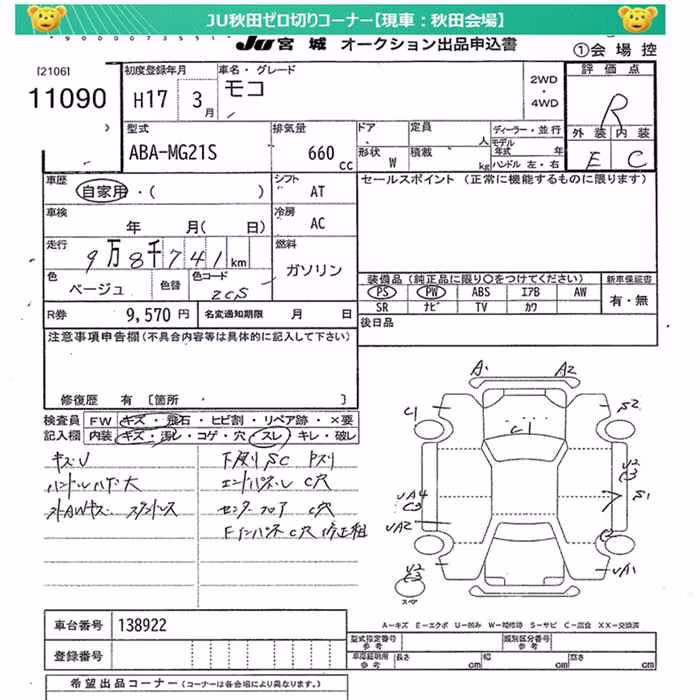 JU秋田ゼロ切りコーナー【現車：秋田会場】
JU 宮城 オークション出品申込書
①会場控
[2106]
11090
初度登録年月
H17 3月
車名・グレード
モコ
2WD
・
4WD
評価点
R
外装 内装
E C
型式
ABA-MG21S
排気量
660 cc
ドア
定員 人
形状 W
積載 kg
ディーラー・並行
モデル年式 年
ハンドル 左・右
車歴
自家用・( )
シフト
AT
セールスポイント (正常に機能するものに限ります)
車検
年 月( 日)
冷房
AC
走行
9万8千741km
燃料
ガソリン
色
ベージュ
色替
色コード
2CS
装備品 (純正品に限り○をつけてください)
PS PW ABS エアB AW
SR ナビ TV カワ
新車保証書
有・無
R券
9,570円
名変通知期限 月 日
後日品
注意事項申告欄(不具合内容等は具体的に記入して下さい)
修復歴 有 [箇所 ]
検査員 FW キズ・飛石・ヒビ割・リペア跡・×要
記入欄 内装 キズ・汚レ・コゲ・穴 スレ・キレ・破レ
キズU
下廻りSC Pスリ
ハンドルハゲ大
エンドパネル C穴
センターフロア C穴
Fインパネ C穴 修正粗
A1
A2
C1
C1
S2
U2
C3
S1
UA4
C3
UA2
C2
U2
C3
スペア
UA1
A－キズ E－エクボ U－凹み W－補修跡 S－サビ C－腐食 XX－交換済
車台番号
138922
登録番号
型式指定番号
参考
類別区分番号
参考
車庫証明用
参考
長さ cm
幅 cm
高さ cm
希望出品コーナー (コーナーは各会場により異なります。)